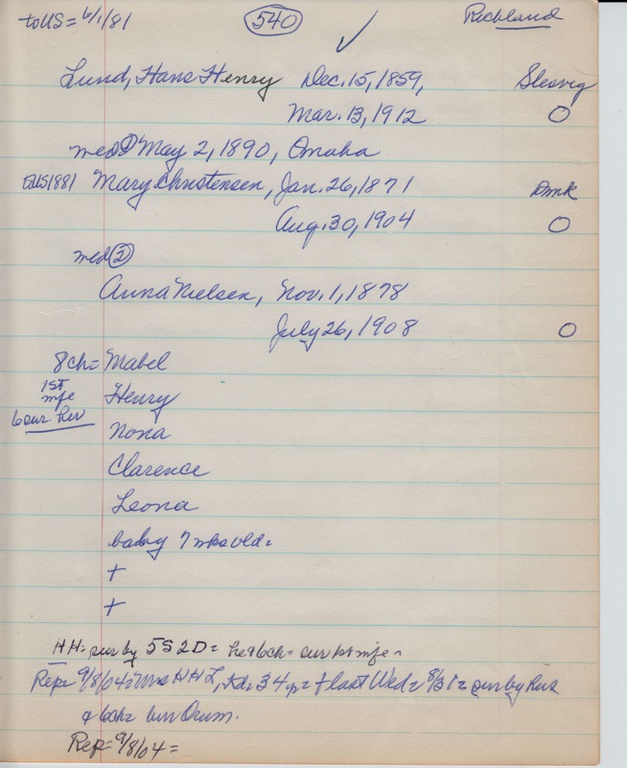 to US = 6/1/81 540 ✓ Richland
Lund, Hans Henry Dec. 15, 1859, Slesvig
Mar. 13, 1912 O
med ① May 2, 1890, Omaha
EUS 1881 Mary Christensen, Jan. 26, 1871 Dmk
Aug. 30, 1904 O
med ②
Anna Nielsen, Nov. 1, 1878
July 26, 1908 O
8 ch = Mabel
1st mfe Henry
6 sur. Rev Nona
Clarence
Leona
baby 7 wks old =
+
+
HH = sur by 5 S 2 D = he & 6 ch = sur 1st mfe
Rep = 9/8/04 = Mrs H H L, 34 yr = + last Wed = 8/31 = sur by Hus
& 6 ch = bur Drum.
Rep = 9/8/04 =